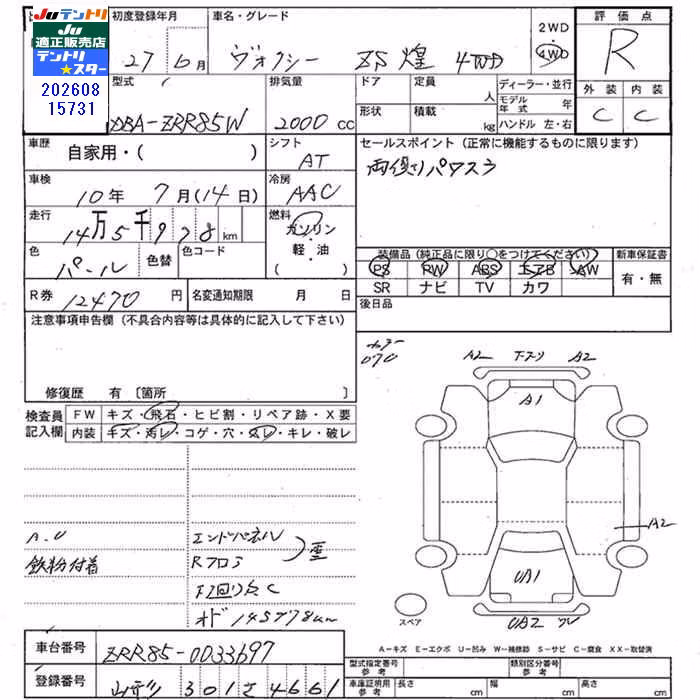 Juテントリ
Juテントリ
適正販売店
テントリ
★スター
202608
15731
初度登録年月
27年6月
車名・グレード
ヴォクシー ZS 煌 4WD
2WD
・
4WD
評価点
R
外装 内装
C C
型式
DBA-ZRR85W
排気量
2000 cc
ドア
定員
人
形状
積載
kg
ディーラー・並行
モデル年式 年
ハンドル 左・右
車歴
自家用・( )
シフト
AT
セールスポイント(正常に機能するものに限ります)
両側パワスラ
車検
10年 7月(14日)
冷房
AAC
走行
14万5千978km
燃料
ガソリン・
軽・油
色
パール
色替
色コード
装備品(純正品に限り○をつけてください)
PS RW ABS エアB AW
SR ナビ TV カワ
新車保証書
有・無
R券
12470円
名変通知期限 月 日
後日品
注意事項申告欄(不具合内容等は具体的に記入して下さい)
修復歴 有〔箇所 〕
カラー
070
検査員
記入欄
FW キズ・飛石・ヒビ割・リペア跡・X要
内装 キズ・汚レ・コゲ・穴・気レ・キレ・破レ
A2 A2
A1
A2
UA1
UA2
スペア
鉄粉付着
エンドパネル
Rフロア
下回り
オド 145978km
A-キズ E-エクボ U-凹み W-補修跡 S-サビ C-腐食 XX-取替済
車台番号
ZRR85-0033697
登録番号
山形 301さ4661
型式指定番号
参考
類別区分番号
参考
車庫証明用
参考
長さ cm
幅 cm
高さ cm